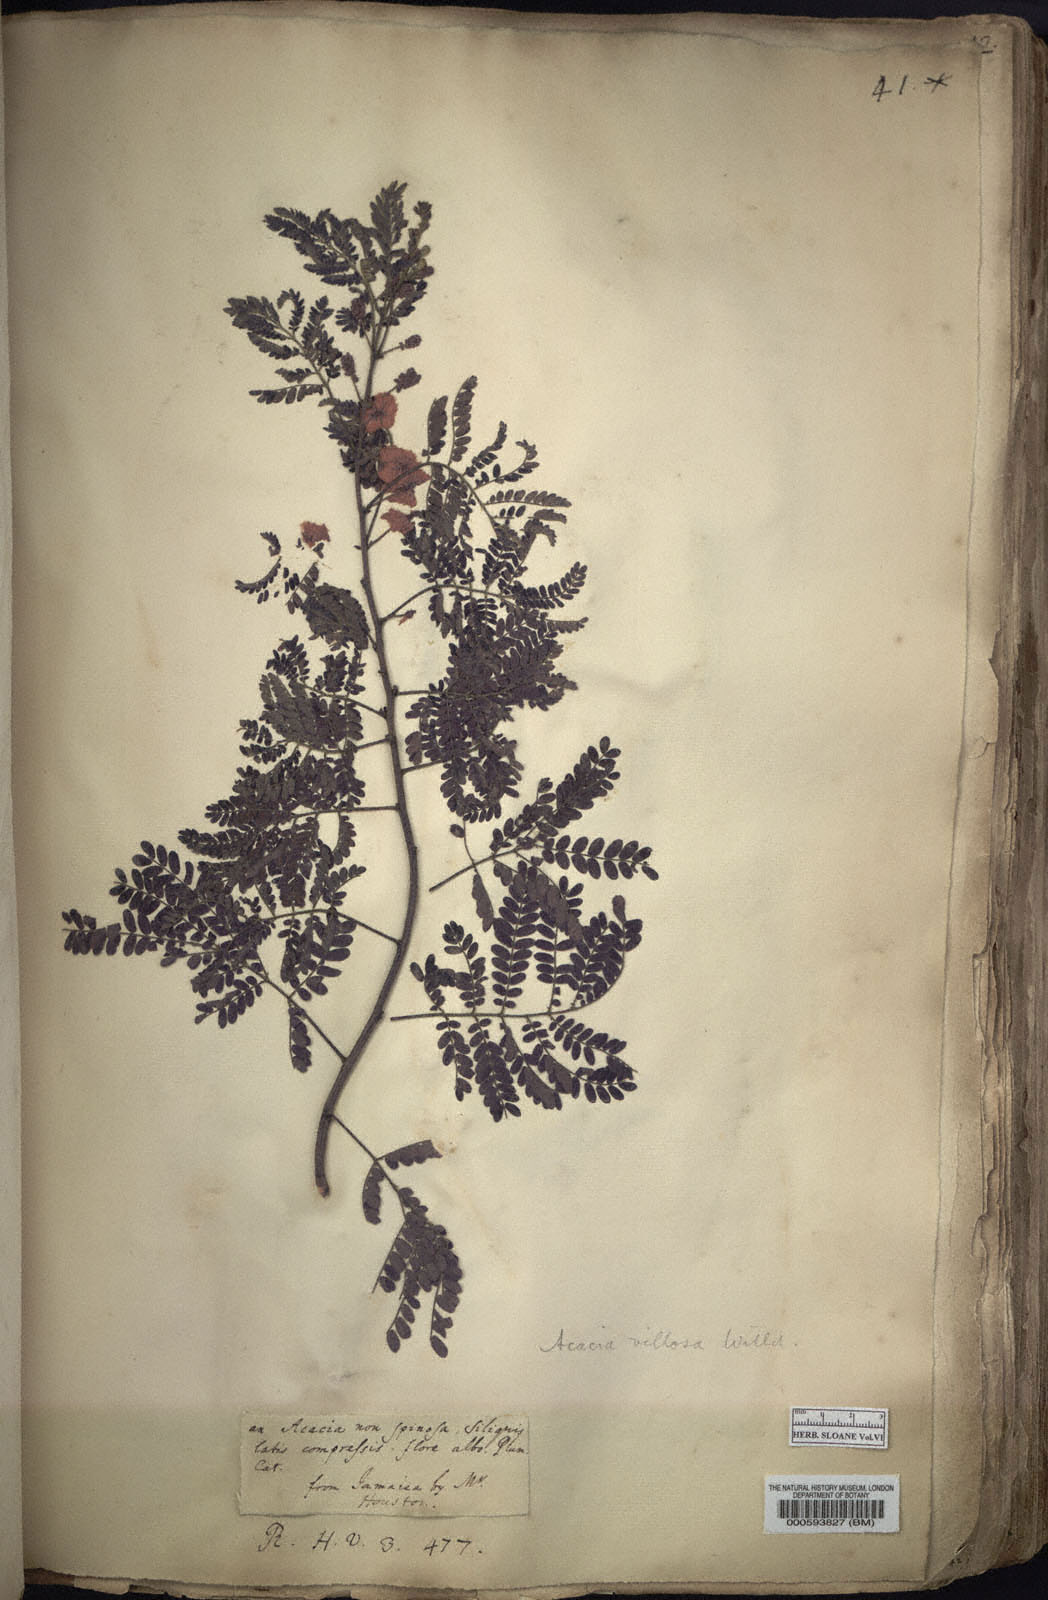 41. *
Acacia villosa Willd.
an Acacia non spinosa. Siliquis
latis compressis. flore albo. Plum
Cat.
from Jamaica by Mr.
Houston.
R. H. V. 3. 477.
HERB. SLOANE Vol. VI
THE NATURAL HISTORY MUSEUM, LONDON
DEPARTMENT OF BOTANY
000593827 (BM)